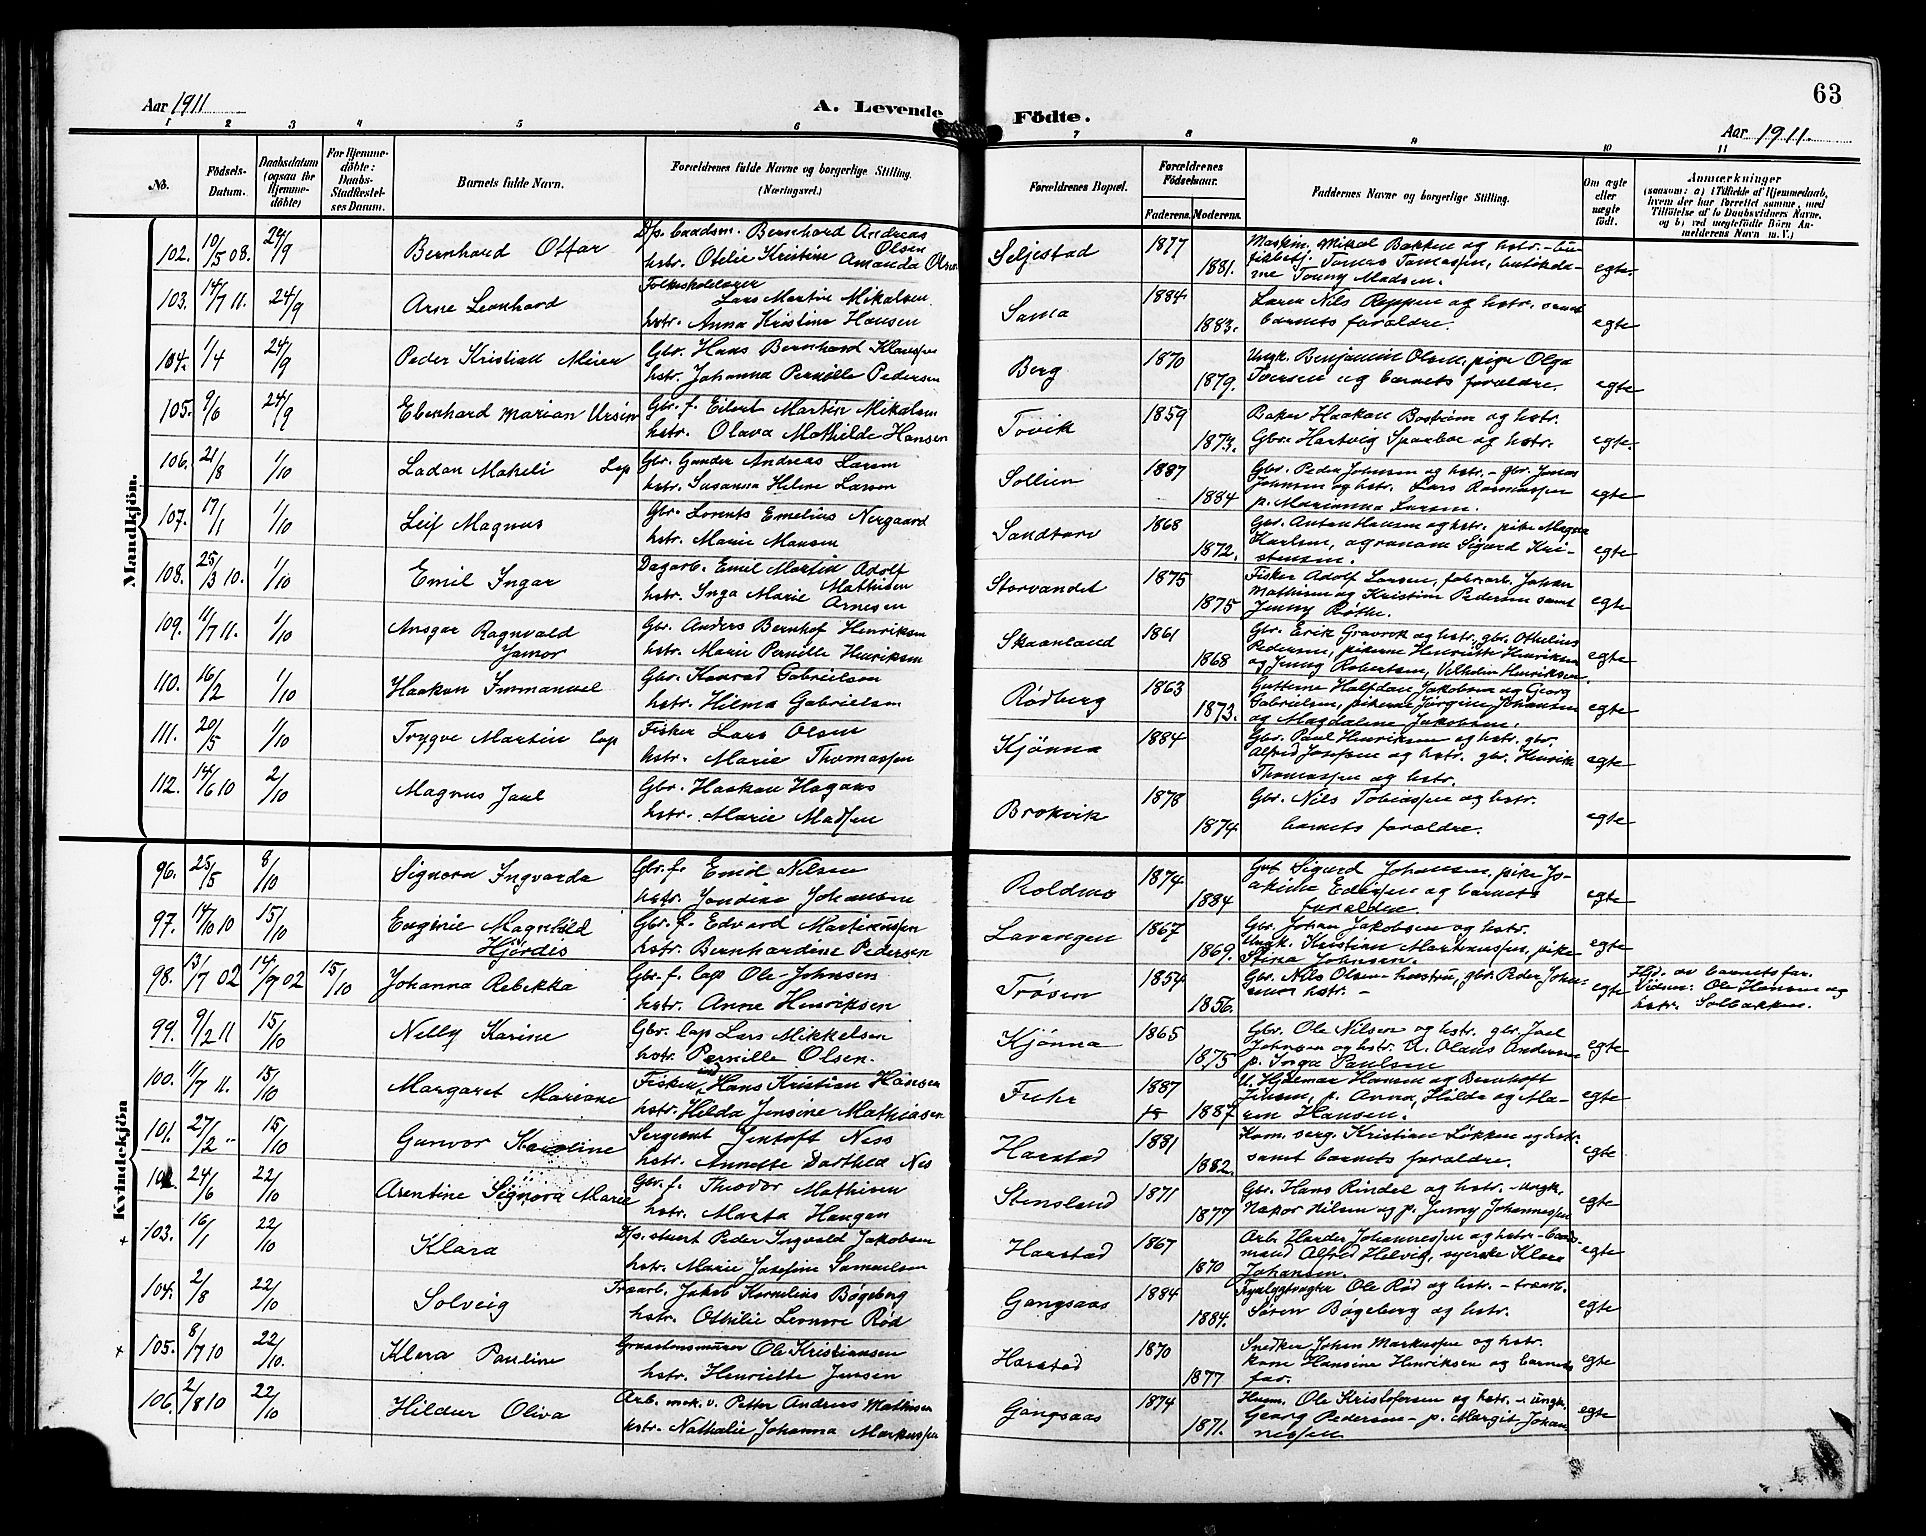 63
Aar 1911
A. Levende
Födte.
Aar 1911.
1 2 3 4 5 6 7 8 9 10 11
No.
Födsels-
Datum.
Daabsdatum
(ogsaa for
Hjemme-
döbte)
For Hjemme-
döbte:
Daabs-
Stadfæstel-
ses Datum.
Barnets fulde Navn.
Forældrenes fulde Navne og borgerlige Stilling.
(Næringsvei.)
Forældrenes Bopæl.
Forældrenes
Födselsaar.
Faderens. Moderens.
Faddernes Navne og borgerlige Stilling.
Om ægte
eller
uægte
födt.
Anmærkninger
(saasom: a) i Tilfælde af Hjemmedaab,
hvem der har forrettet samme, med
Tilföielse af to Daabsvidners Navne,
og b) ved uægtefödte Börn An-
melderens Navn m. V.)
Mandkjön.
102. 10/5 08. 24/9 Bernhard Ottar
D/s. baadsm. Bernhard Andreas
Olsen
hstr. Otilie Kristine Amanda Olsen
Seljestad 1877 1881.
Maskin. Mikal Bakken og hstr. - bu-
tikbetj. Tomas Tomassen, butikda-
me Tonny Madsen.
egte.
103. 14/7 11. 24/9 Arne Leonhard
Folkeskolelærer
Lars Martin Mikalsen
hstr. Anna Kristine Hansen
Sama 1884 1883.
Lærer Nils Roppen og hstr. samt
barnets forældre.
egte
104. 1/4 24/9 Peder Kristian Meier
Gbr. Hans Bernhard Klaussen
hstr. Johanna Pernille Pedersen
Berg 1870 1879.
Ungk. Benjamin Olsen, pige Olga
Iversen og barnets forældre.
egte
105. 9/6 24/9 Ebenhard Marian Ursin
Gbr. f. Eilert Martin Mikalsen
hstr. Olava Mathilde Hansen
Tovik 1859 1873.
Baker Haakon Boström og hstr.
Gbr. Hartvig Sparboe og hstr.
egte.
106. 21/8 1/10 Ladan Mateli Lap
Gbr. Gunder Andreas Larsen
hstr. Susanna Helene Larsen
Sollien 1887 1884
Gbr. Peder Johnsen og hstr. - gbr. Jonas
Johnsen og hstr. Lars Rasmussen
p. Marianna Larsen.
egte
107. 17/1 1/10 Leif Magnus
Gbr. Lorents Emelius Nergaard
hstr. Marie Monsen
Sandtorv 1868 1872.
Gbr. Anton Hansen og hstr. pike Magna
Karlsen, agronom Sigurd Kri-
stensen.
egte
108. 25/3 10. 1/10 Emil Ingar
Dagarb. Emil Martin Adolf
Mathisen
hstr. Inga Marie Arnesen
Storvandet 1875 1875
Fisker Adolf Larsen, fabr.arb. Johan
Mathisen og Kristine Pedersen samt
Jenny Röthe.
egte
109. 11/7 11. 1/10 Ansgar Ragnvald
Jamor
Gbr. Anders Bernhof Henriksen
hstr. Marie Pernille Henriksen
Skaanland 1861 1868
Gbr. Erik Gravrok og hstr., gbr. Othelius
Pedersen, pikerne Henriette Henriksen
og Jenny Robertsen, Vilhelm Henriksen.
egte
110. 16/2 1/10 Haakon Immanuel
Gbr. Konrad Gabrielsen
hstr. Hilma Gabrielsen
Rødberg 1863 1873.
Gutterne Halfdan Jakobsen og Georg
Gabrielsen, pikerne Jørgine Johansen
og Magdalene Jakobsen.
egte
111. 20/5 1/10 Trygve Martin Lap
Fisker Lars Olsen
hstr. Marie Thomassen
Kjønna 1884
Gbr. Paul Henriksen og hstr. gbr.
Alfred Josefsen og hstr. gbr. Henrik
Thomassen og hstr.
egte
112. 14/6 10 2/10 Magnus Joul
Gbr. Haakon Hagans
hstr. Marie Madsen
Brokvik 1878 1874
Gbr. Nils Tobiassen og hstr.
barnets forældre.
egte
Kvindekjön
96. 25/5 8/10 Signora Ingvarda
Gbr. f. Emil Nilsen
hstr. Jondine Johansen
Roldmo 1874 1884
Gut Sigurd Johansen, pike Jo-
akime Edissen og barnets
forældre.
egte
97. 14/10 10 15/10 Euginie Magnhild
Hjördis
Gbr. f. Edvard Martinussen
hstr. Bernhardine Pedersen
Lavangen 1867 1869.
Gbr. Johan Jakobsen og hstr.
Ungk. Kristian Martinussen, pike
Stina Johnsen.
egte
98. 13/7 02 14/9 02 15/10 Johanna Rebekka
Gbr. f. Lap Ole Johnsen
hstr. Anne Henriksen
Trøsen 1854 1856.
Gbr. Nils Olsen hustru, gbr. Peder John-
sen hstr. -
egte
Hjd. av barnets far.
Vidner: Ole Hansen og
hstr. Solbakken.
99. 9/2 11 15/10 Nelly Karine
Gbr. Lap Lars Mikkelsen
hstr. Pernille Olsen.
Kjønna 1865 1875
Gbr. Ole Nilsen og hstr. gbr. Joel
Johnsen og hstr. U. Olaus Andersen
p. Inga Paulsen
egte
100. 11/7 11. 15/10 Margaret Mariane
Fisker, ind Hans Kristian Hansen
hstr. Hilda Jensine Mathiasen
Fuhr 1887 18 1887
U. Hjelmar Hansen og Bernhoft
Jensen, p. Anna, Hilda og Ma-
ren Hansen.
egte
101. 27/2 " 15/10 Gunvor Karoline
Sergeant Jentoft Ness
hstr. Annette Dorthea Nes
Harstad 1881 1882.
Kom. serg. Kristian Løkken og hstr.
samt barnets forældre.
egte
102. 24/6 22/10 Arentine Signora Marie
Gbr. f. Theodor Mathisen
hstr. Marta Haugan
Stensland 1871 1877
Gbr. Hans Rindel og hstr. - ungk.
Nakor Nilsen og p. Jenny Johannessen
egte
+ 103. 16/1 22/10 Klara
D/s. stuert Peder Ingvald Jakobsen
hstr. Marie Josefine Samuelsen
Harstad 1867 1870
Arb. Harder Johannessen og hstr. - baads-
mand Alfred Helvig, syerske Klara
Johansen.
egte
104. 2/8 22/10 Solveig
Træarb. Jakob Kornelius Bøgeberg
hstr. Othilie Leonore Rød
Gangsaas 1884 1884.
Fyrlygtvogter Ole Rød og hstr. - træarb.
Søren Bøgeberg og hstr.
egte
x 105. 8/7 10 22/10. Klara Pauline
Graastensmurer Ole Kristiansen
hstr. Henriette Jensen
Harstad 1870 1877
Snedker Johan Markussen og hstr.
kone Hansine Henriksen og barnets
far.
egte
106. 2/8 10 22/10 Hildur Oliva
Arb. mek. v. Petter Andreas Mathisen
hstr. Nathalie Johanna Markussen
Gangsaas 1874 1871.
Husm. Ole Kristofersen og hstr. - ungk.
Georg Pedersen - p. Margit Johan
nessen
egte